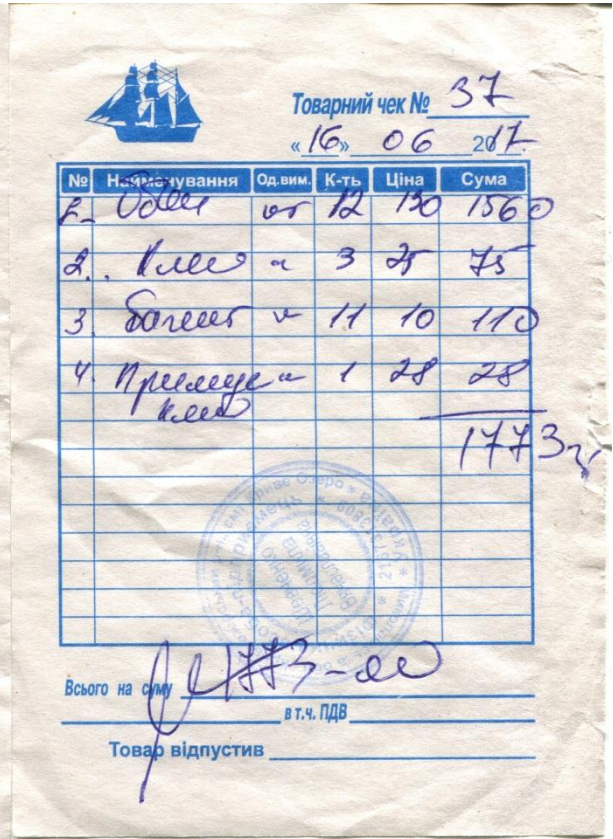 Товарний чек № 37
«16» 06 2017
№ Найменування Од.вим. К-ть Ціна Сума
1. Обои шт 12 130 1560
2. Клей " 3 25 75
3. Багет " 11 10 110
4. " 1 28 28
клей
1773
Всього на суму 1773-00
в т.ч. ПДВ
Товар відпустив